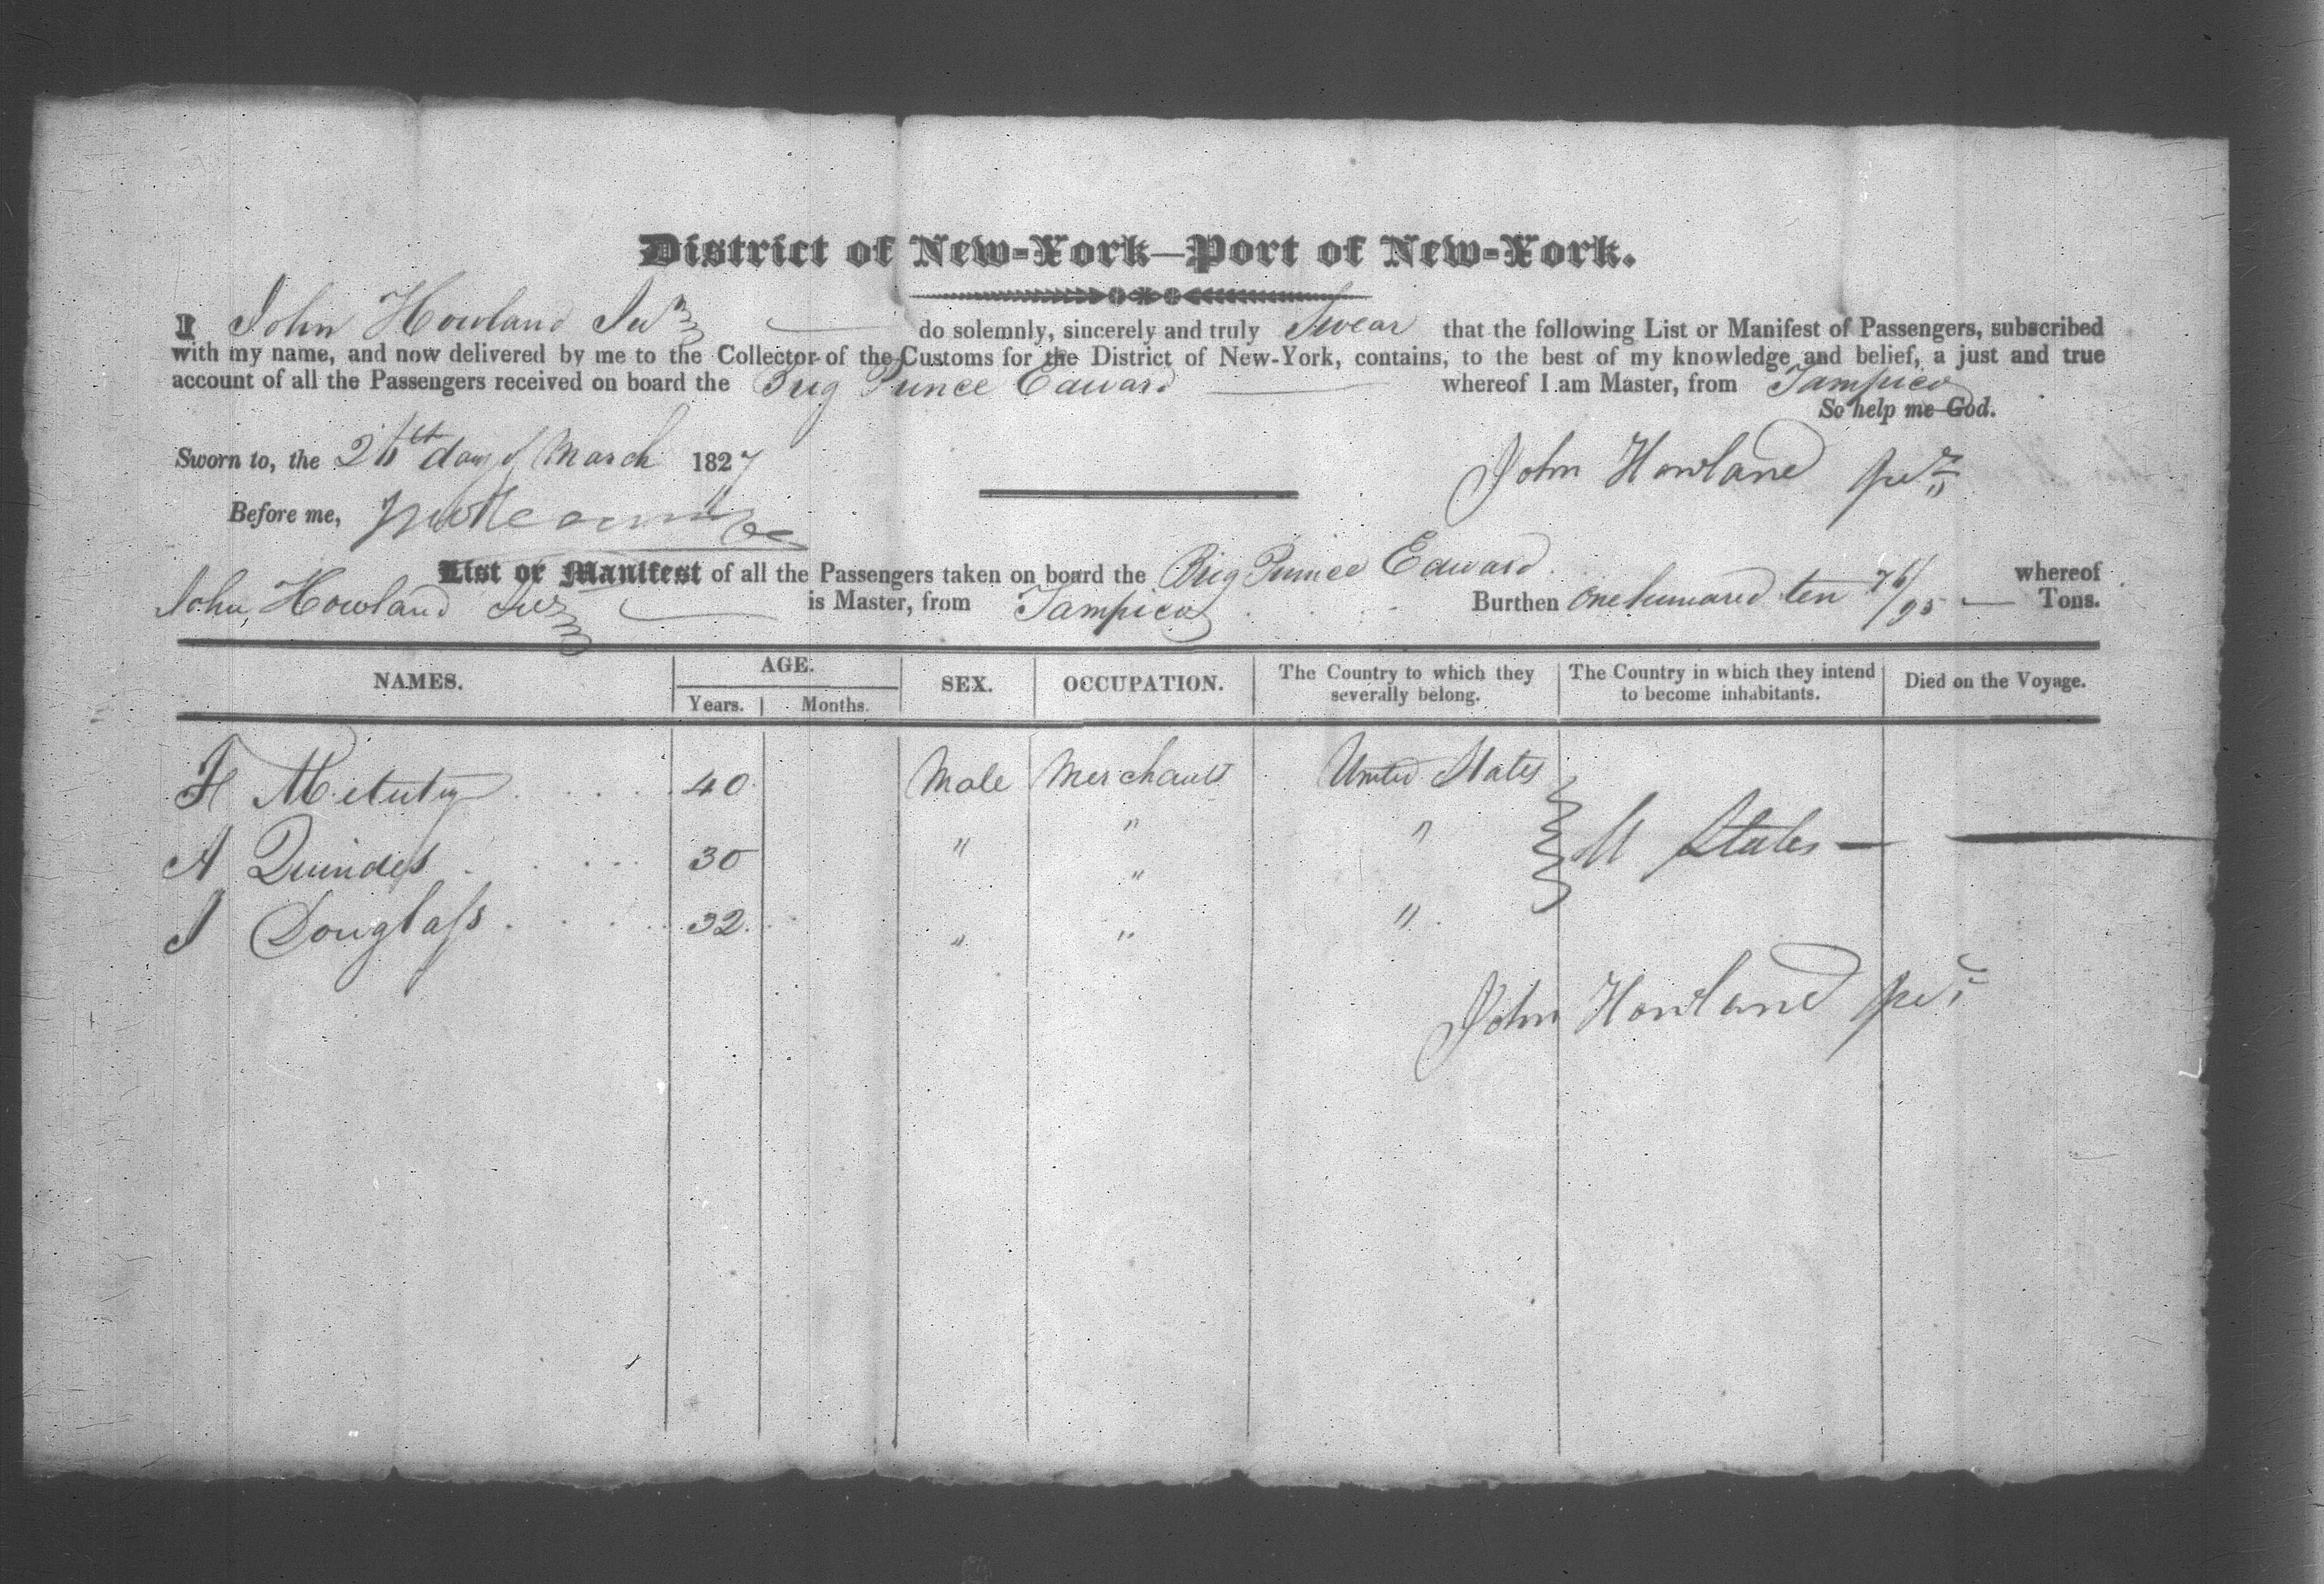 District of New-York—Port of New-York.
I John Howland Junr do solemnly, sincerely and truly Swear that the following List or Manifest of Passengers, subscribed
with my name, and now delivered by me to the Collector of the Customs for the District of New-York, contains, to the best of my knowledge and belief, a just and true
account of all the Passengers received on board the Brig Prince Edward whereof I am Master, from Tampico
So help me God.
Sworn to, the day of March 1827
John Howland Junr
Before me,
List or Manifest of all the Passengers taken on board the Brig Prince Edward whereof
John Howland Junr is Master, from Tampico Burthen One hundred ten 76/95 Tons.
NAMES. AGE. SEX. OCCUPATION. The Country to which they severally belong. The Country in which they intend to become inhabitants. Died on the Voyage.
Years. Months.
F 40 Male Merchant United States
A 30 " " " U States —
J Douglass 32 " " "
John Howland Junr